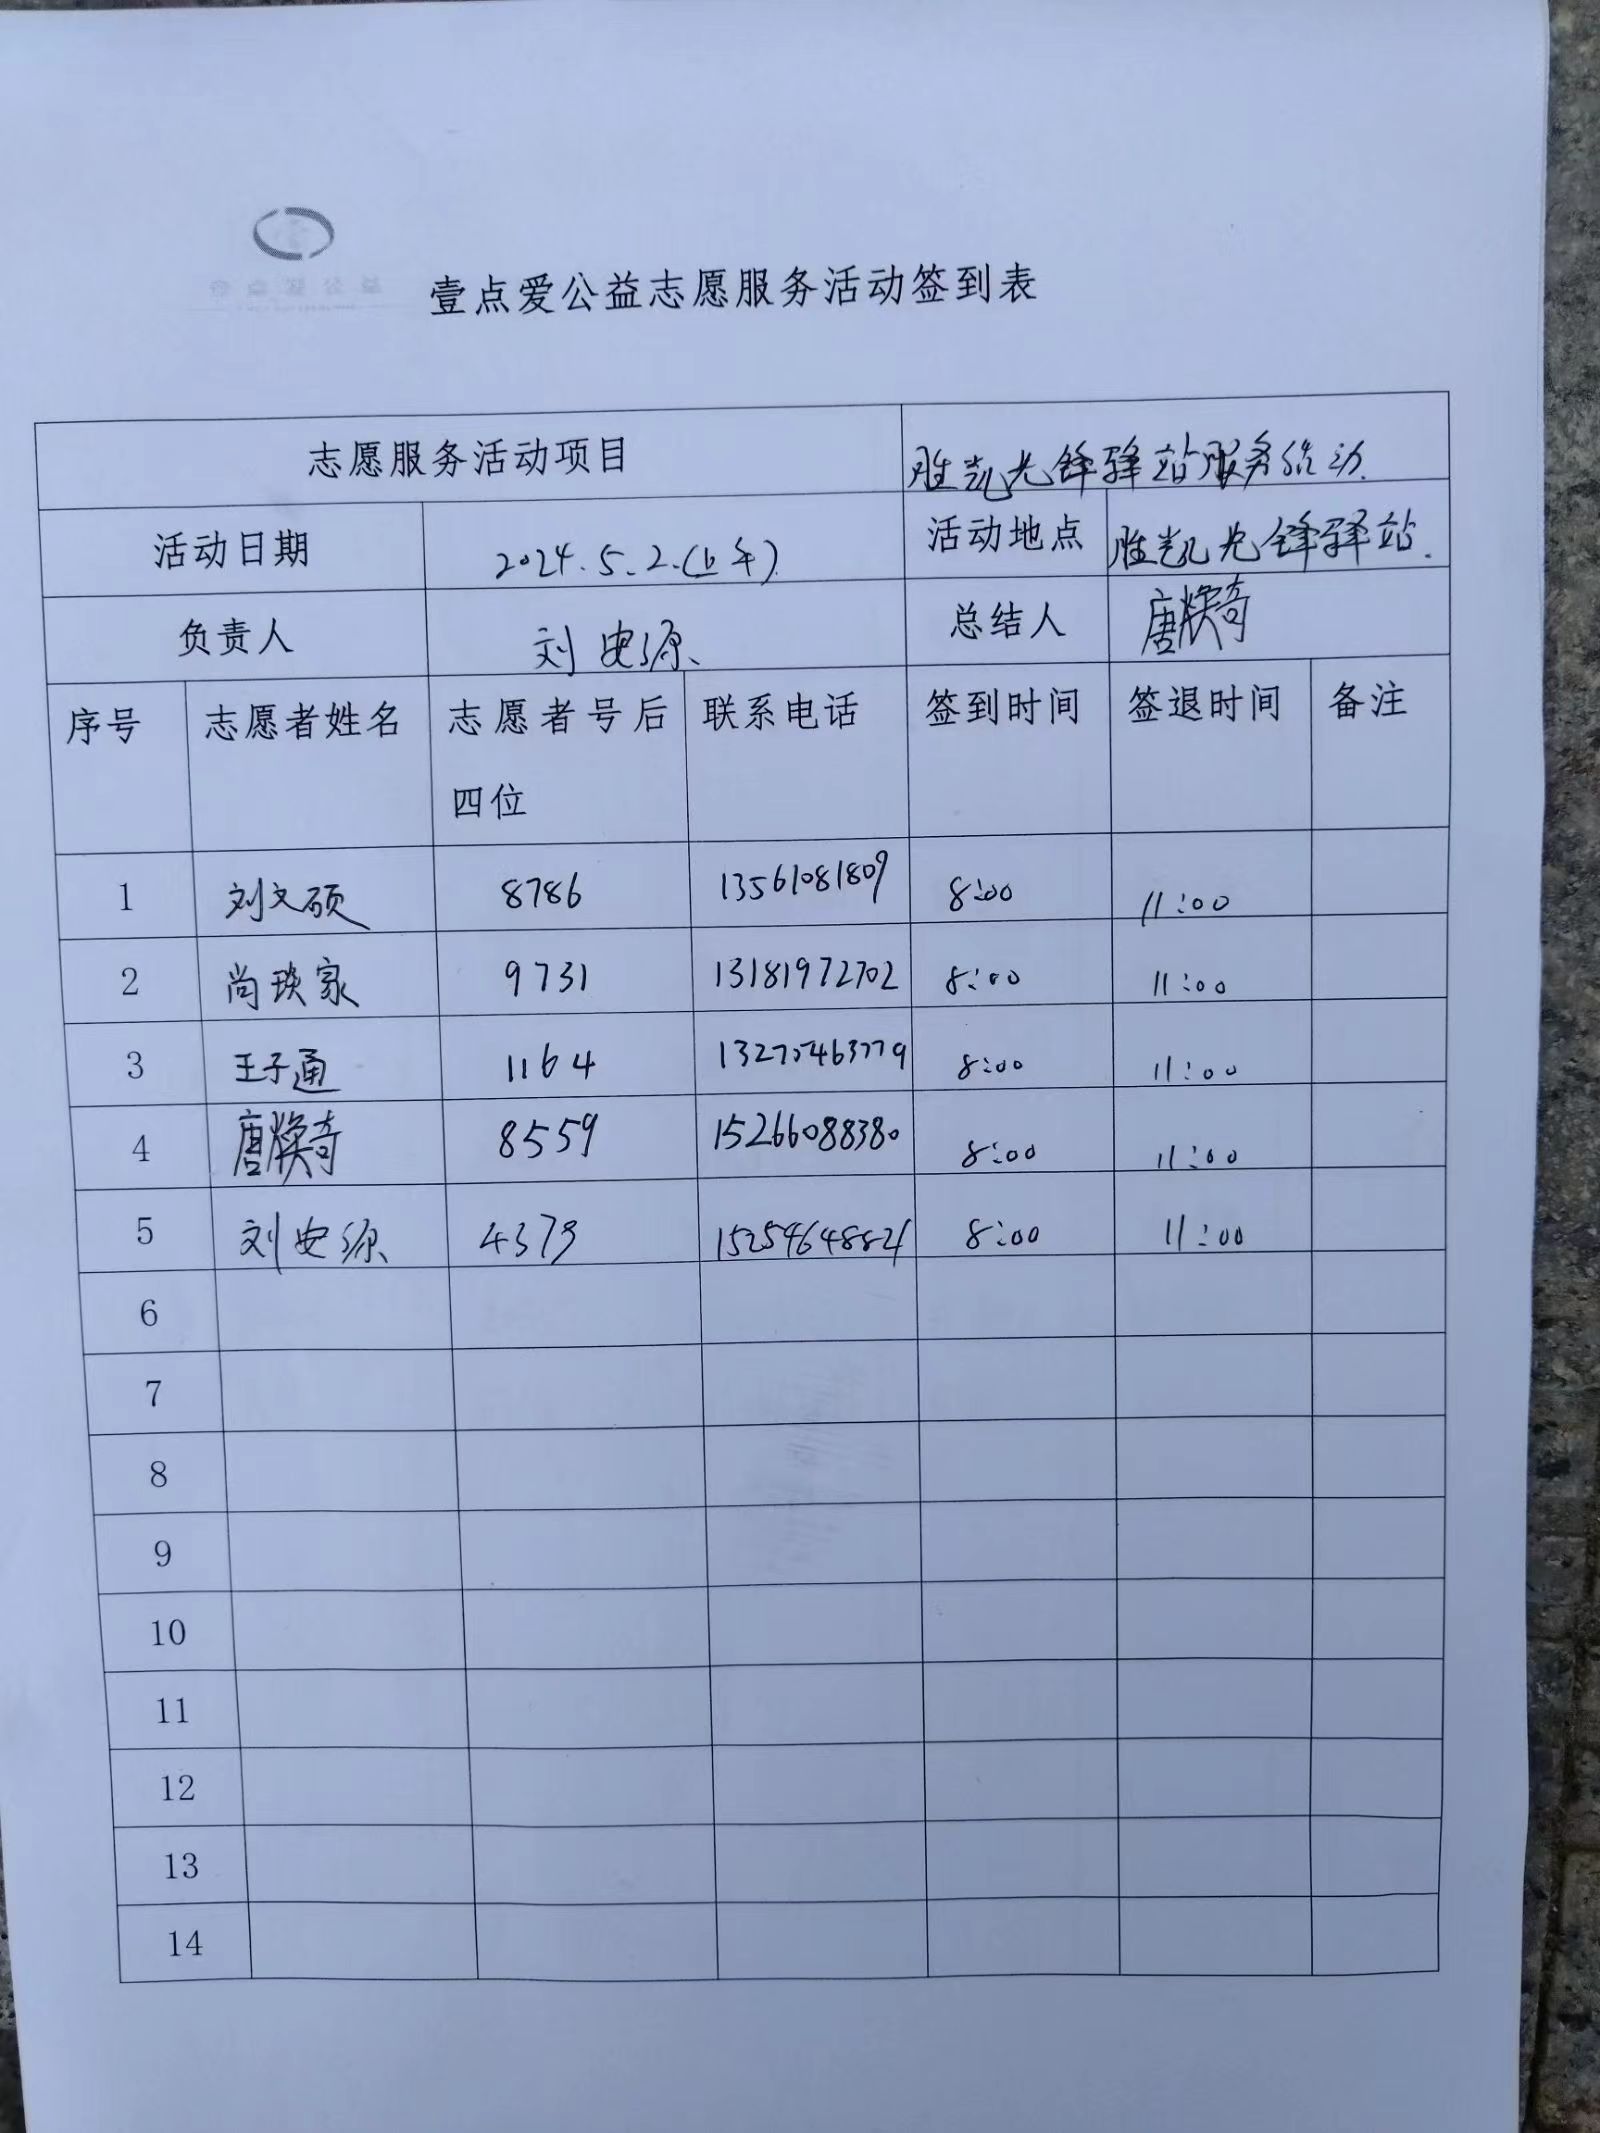 壹点爱公益志愿服务活动签到表
志愿服务活动项目 胜凯先锋驿站服务活动.
活动日期 2024.5.2.(上午) 活动地点 胜凯先锋驿站.
负责人 刘安源 总结人 唐焕奇
序号 志愿者姓名 志愿者号后 联系电话 签到时间 签退时间 备注
四位
1 刘文硕 8786 13561081809 8:00 11:00
2 尚琰家 9731 13181972702 8:00 11:00
3 王子通 1164 13275463779 8:00 11:00
4 唐焕奇 8559 15266088380 8:00 11:00
5 刘安源 4379 15254648821 8:00 11:00
6
7
8
9
10
11
12
13
14